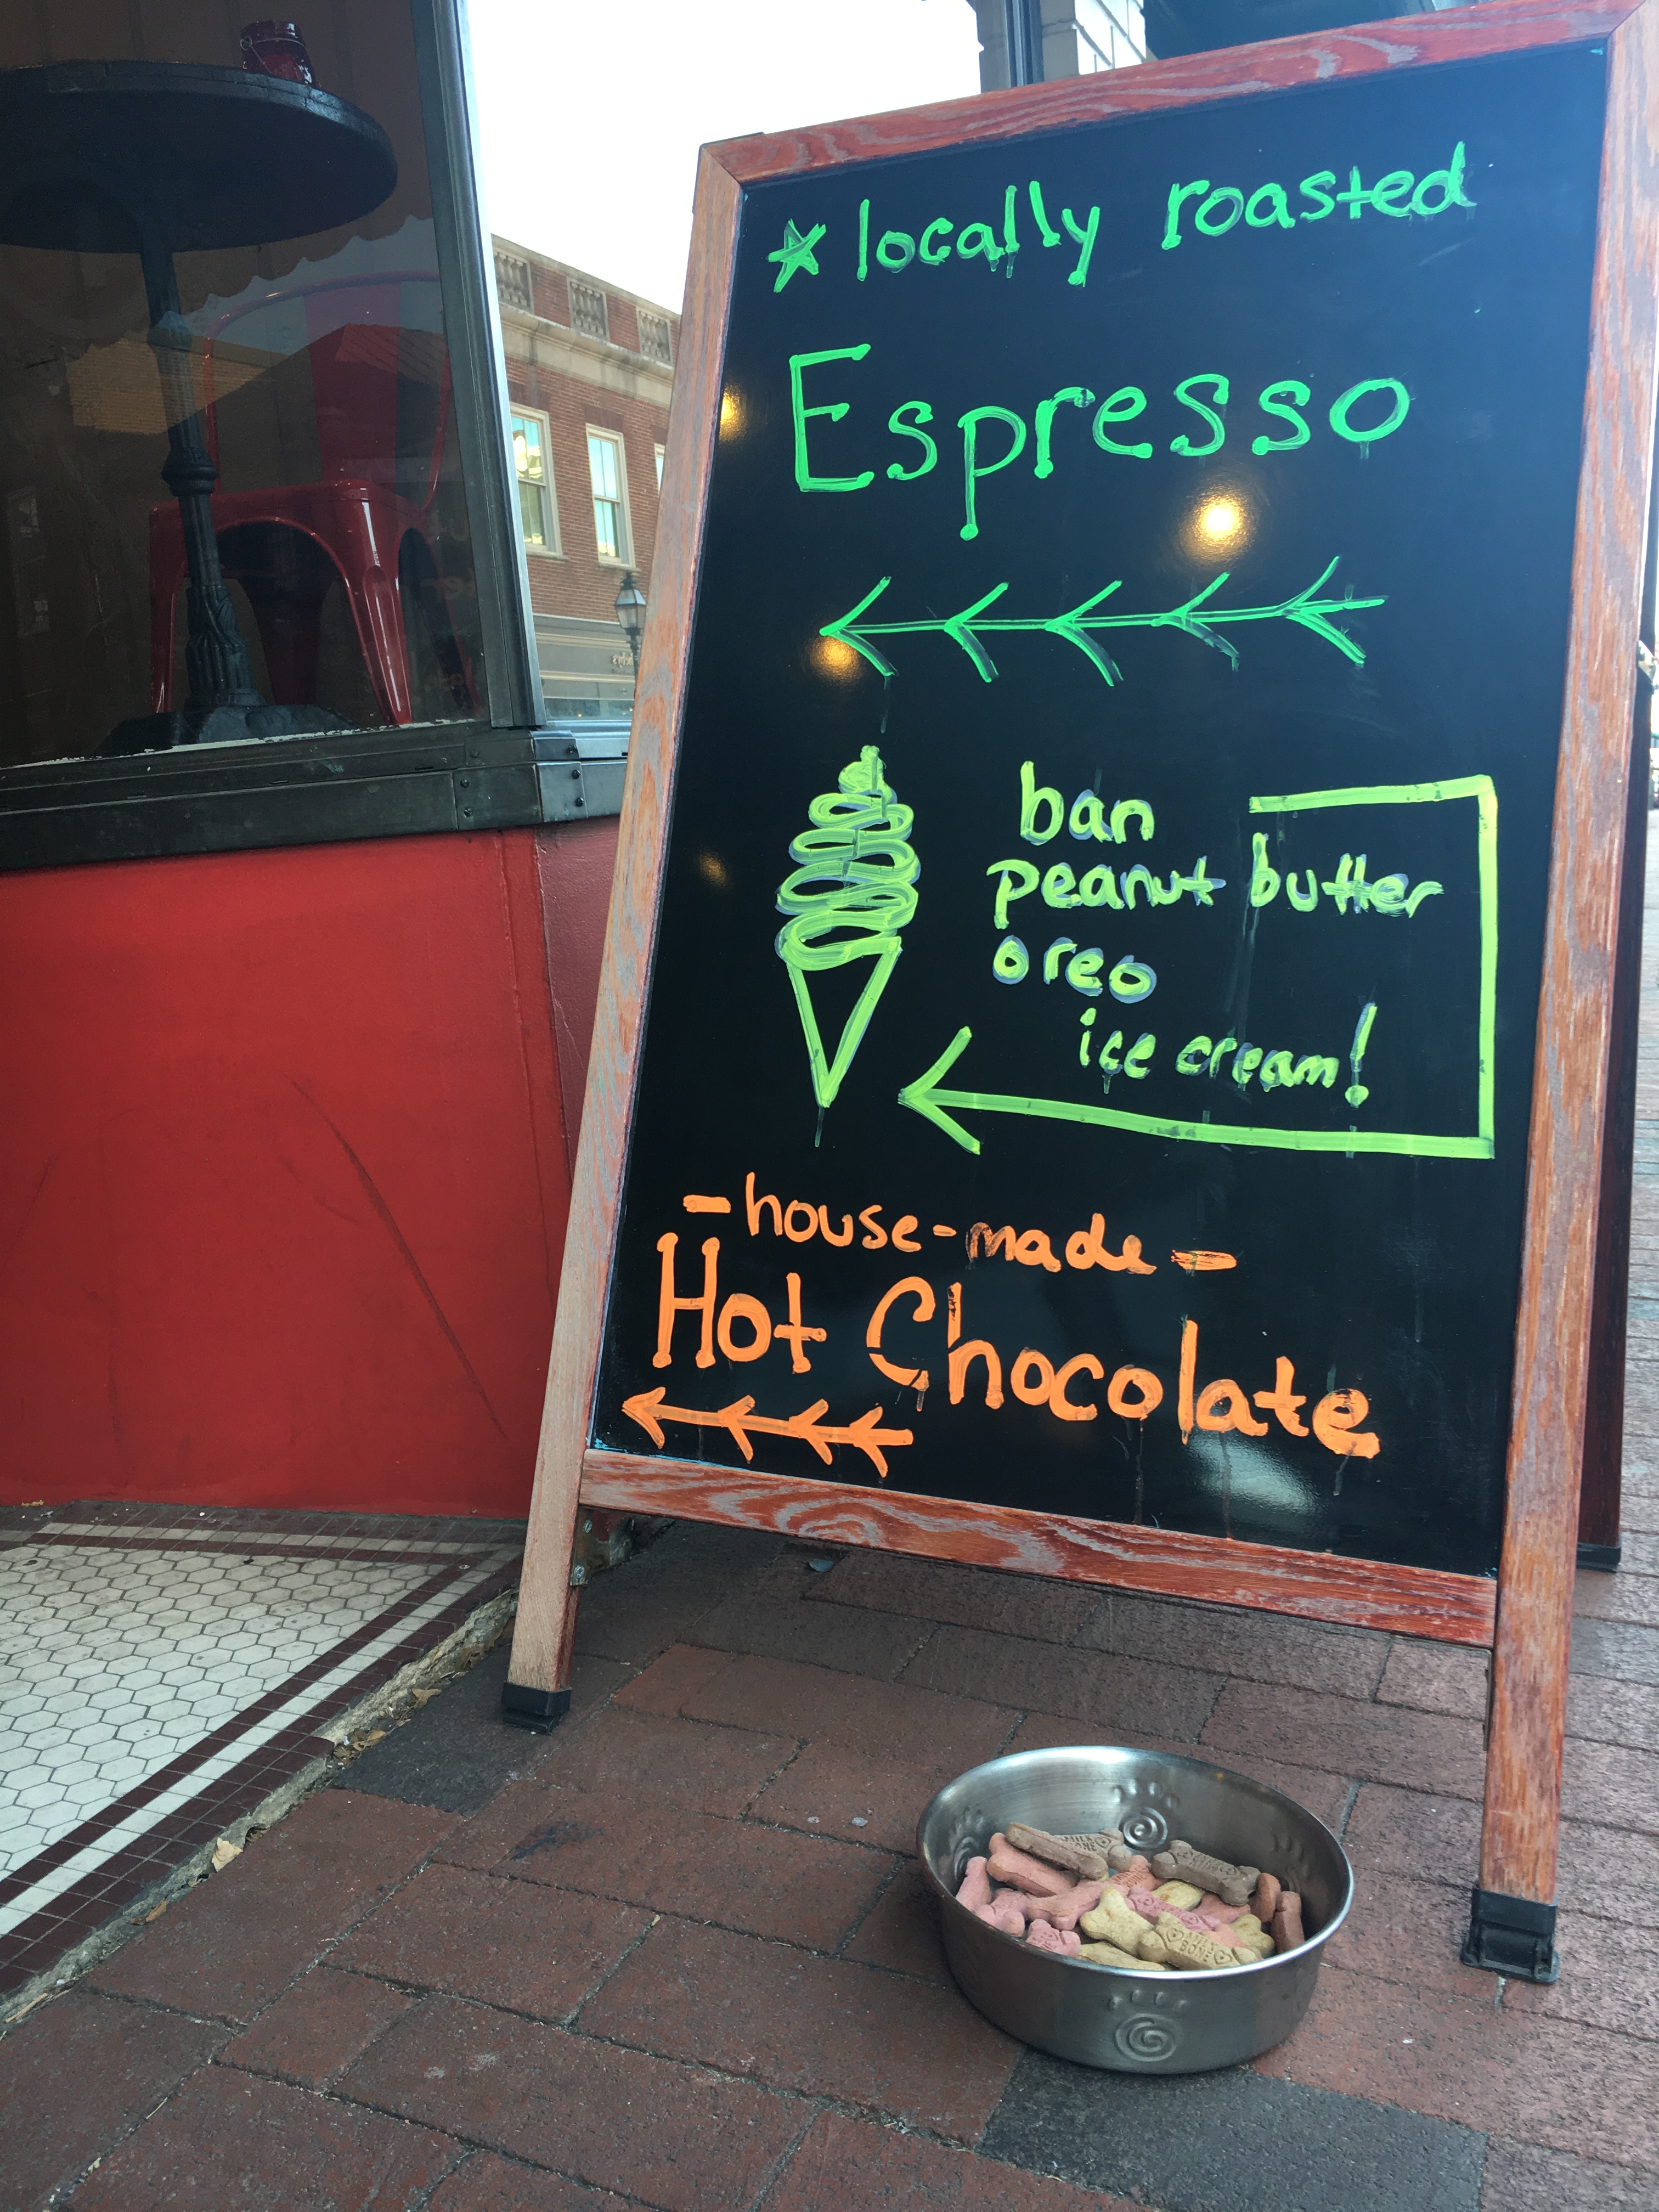 locally roasted
Espresso
ban
peanut butter
oreo
ice cream!
-house-made-
Hot Chocolate
MILK
BONE